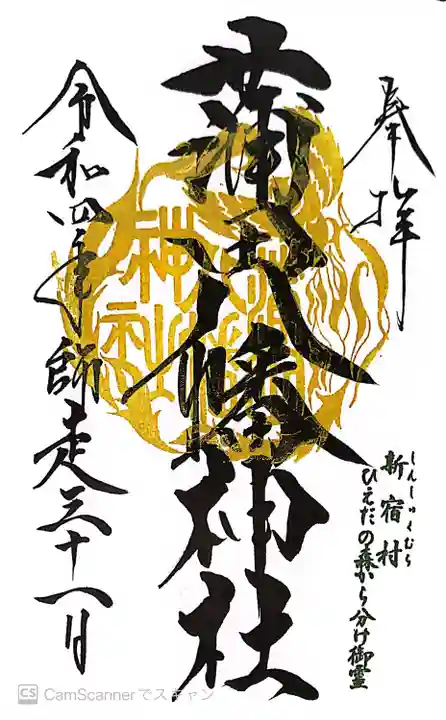 奉拝
しんしゅくむら
新宿村
ひえだの森から分け御霊
蒲田八幡神社
令和四年師走三十一日
CS CamScannerでスキャン